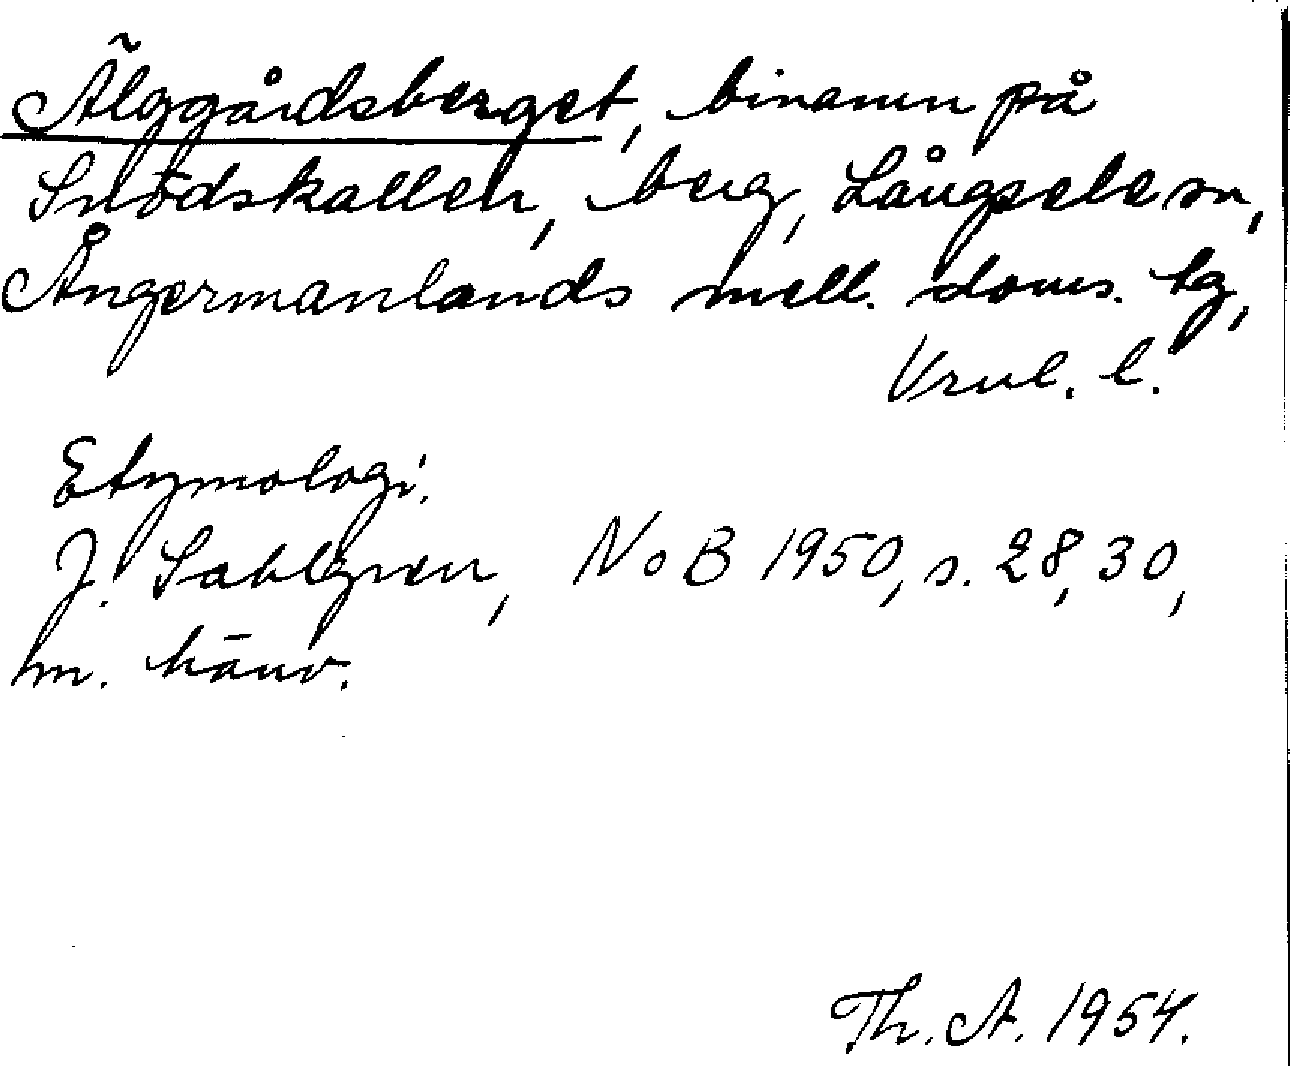 Älggårdsberget, binamn på
Snödskallen, berg, Långsele sn,
Ångermanlands mell. doms. tg,
Vrnl. l.
Etymologi.
J. Sahlgren, NoB 1950, s. 28, 30,
m. hänv.
Th. A. 1954.